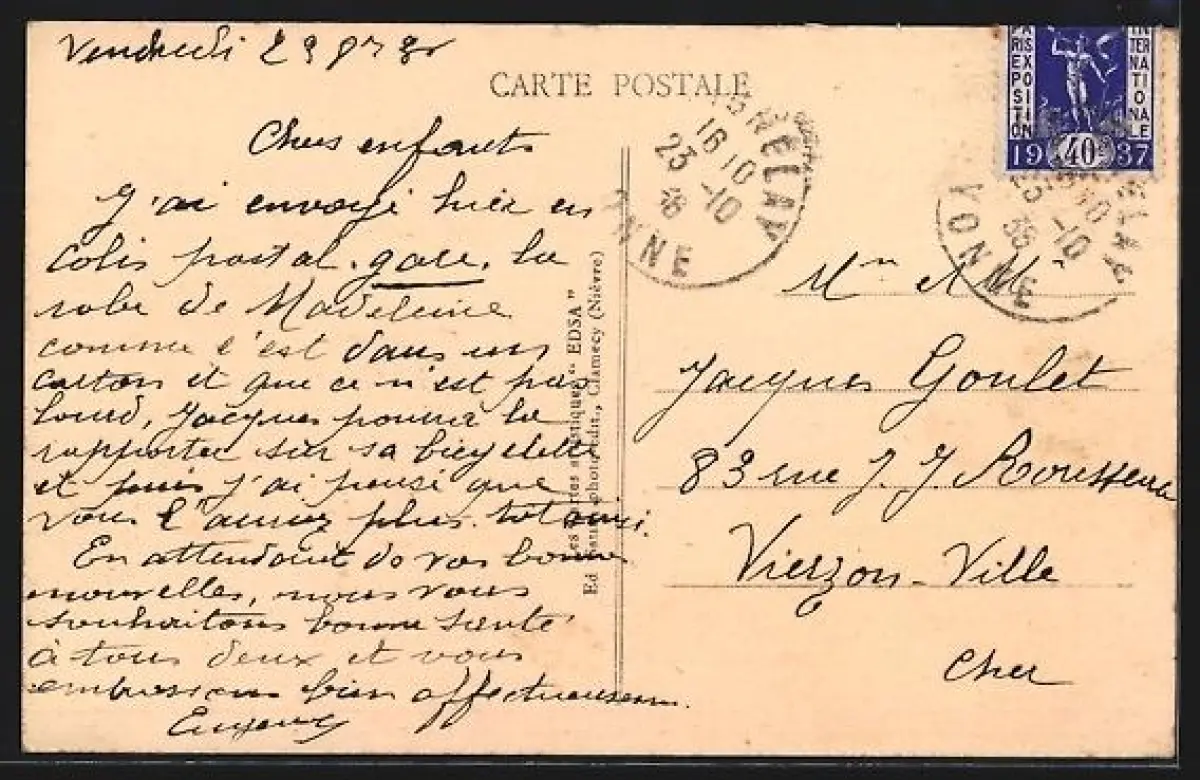 Vendredi 23
CARTE POSTALE
Chers enfants
J'ai envoyé hier en
colis postal, gare, la
robe de Madeleine
comme c'est dans un
carton et que ce n'est pas
lourd, Jacques pourra la
rapporter sur sa bicyclette
et puis j'ai pensé que
vous l'auriez plus tôt ainsi.
En attendant de vos bonnes
nouvelles, nous vous
souhaitons bonne santé
à tous deux et vous
embrassons bien affectueusem.
artistiques "EDSA"
photo-édit., Clamecy (Nièvre)
PARIS EXPOSITION INTERNATIONALE
1937
40c
16 10
23 -10
36
YONNE
Mr et Me
Jacques Goulet
83 rue J. J. Rousseau
Vierzon-Ville
Cher